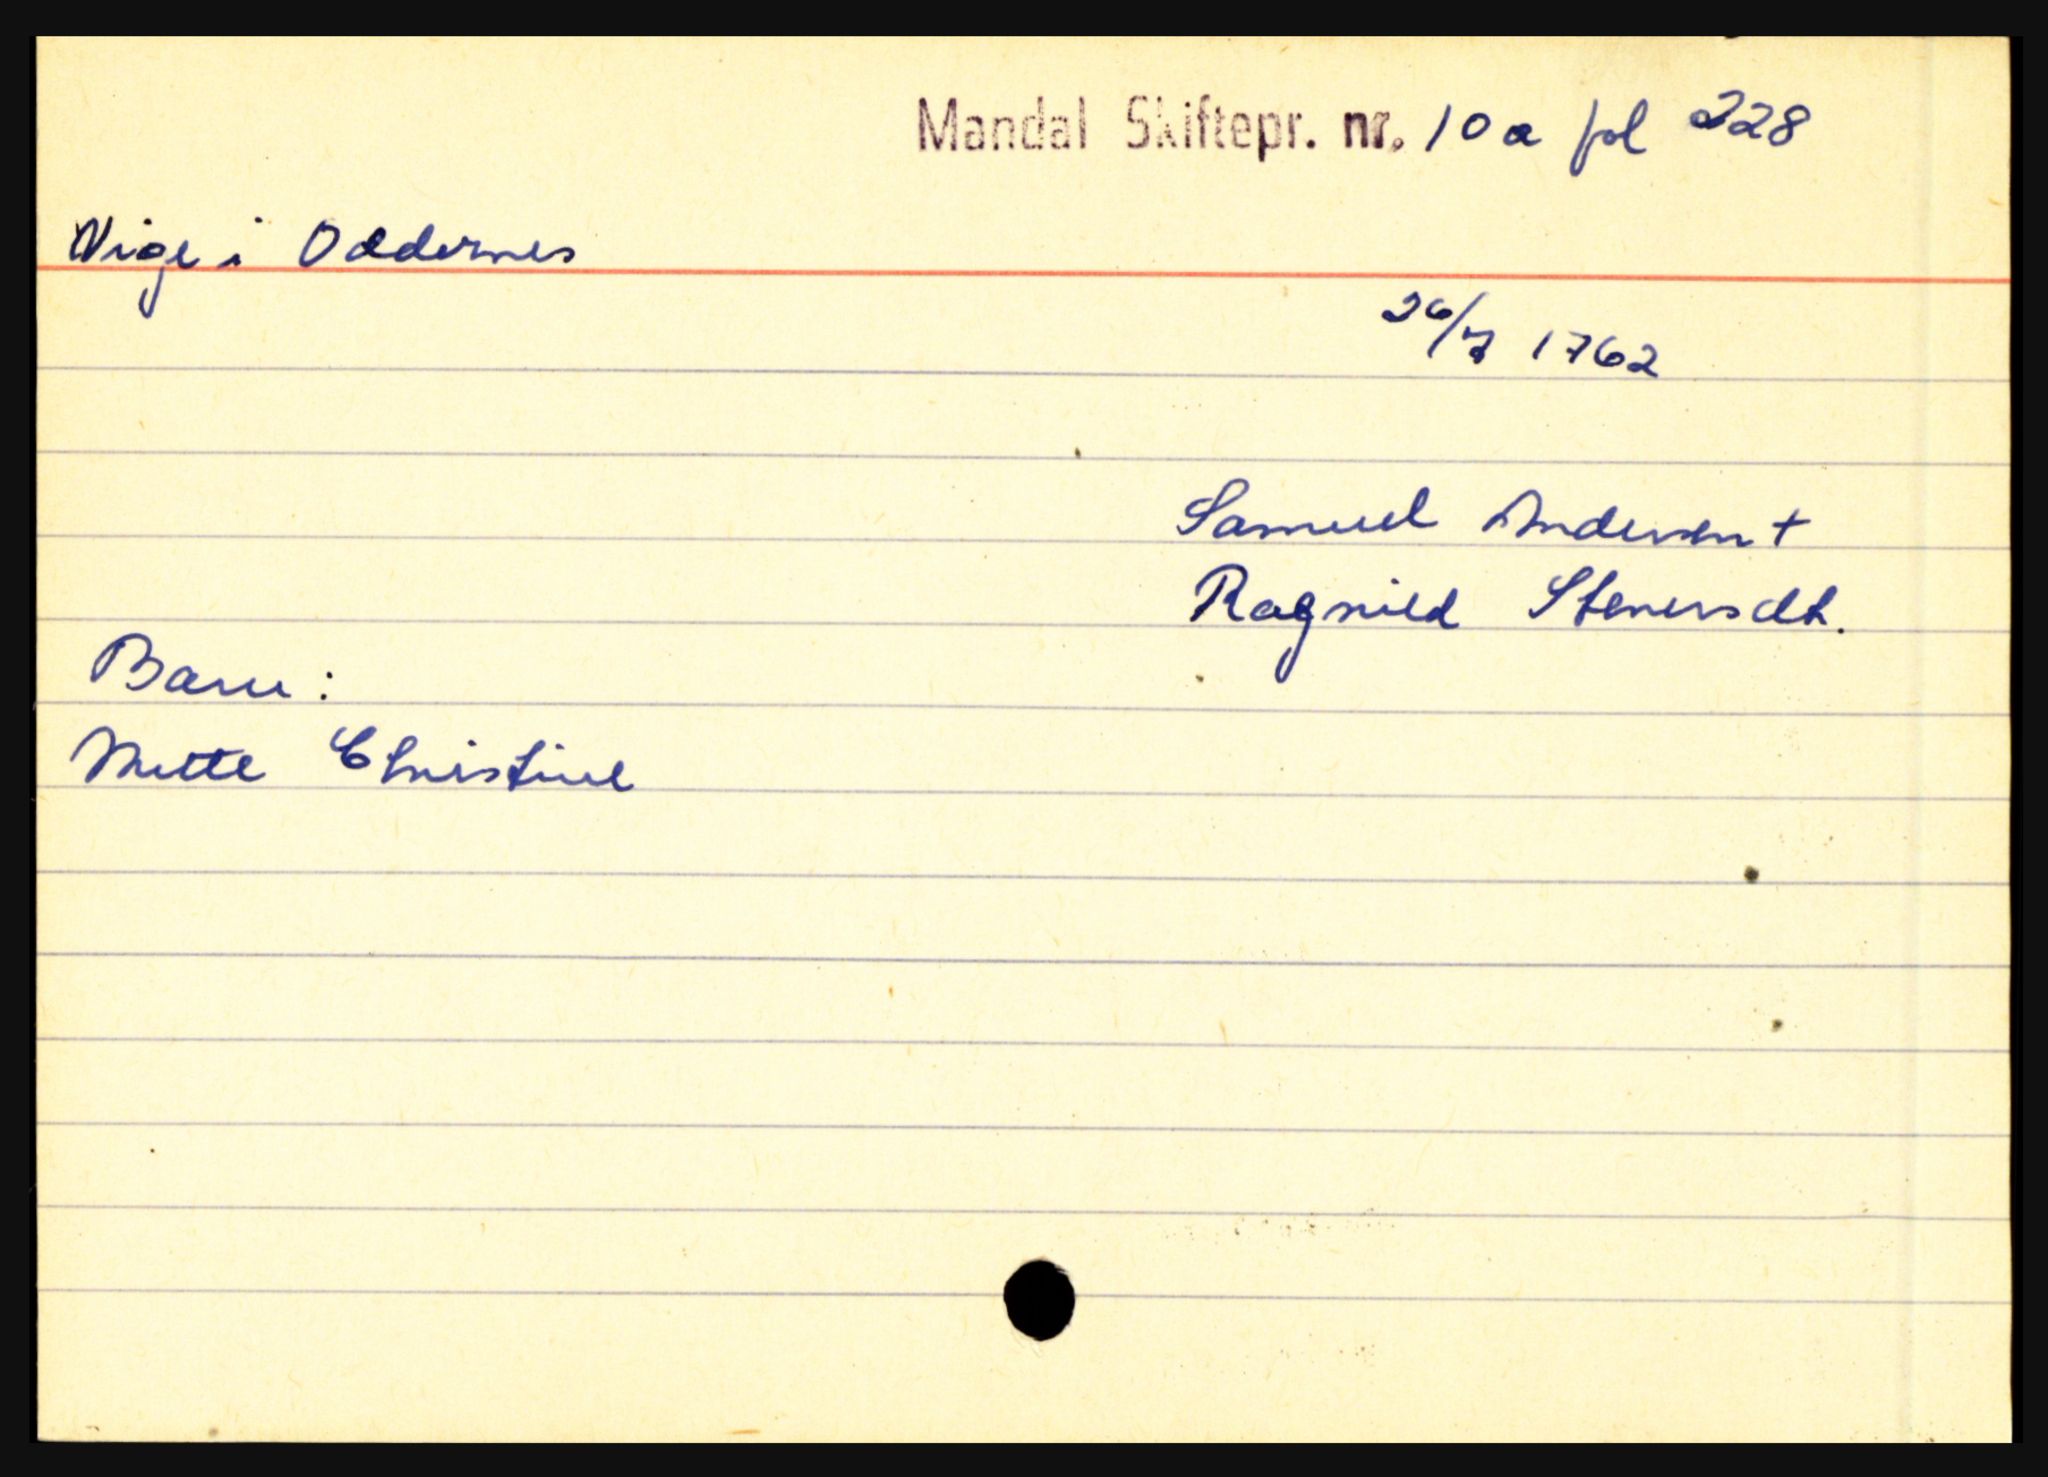 Mandal Skiftepr. nr. 10a fol 228
Vige i Oddernes
26/7 1762
Samuel Andersen +
Ragnild Stenersdt.
Barn:
Mette Christine